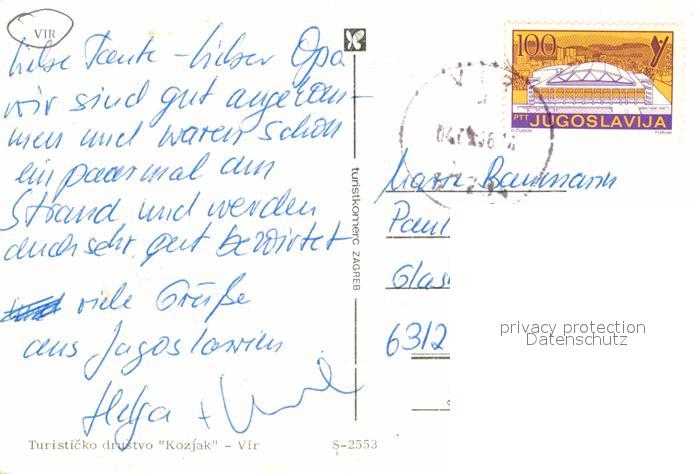 VIR
liebe Tante - lieber Opa
wir sind gut angekom-
men und waren schon
ein paar mal am
Strand und werden
auch sehr gut bewirtet
viele Grüße
aus Jugoslawien
Helga +
Turističko društvo "Kozjak" - Vir
S-2553
turistkomerc ZAGREB
100
PTT JUGOSLAVIJA
D. ČUDOV
FORUM
Maria Baumann
Paul
Glas
6312
privacy protection
Datenschutz